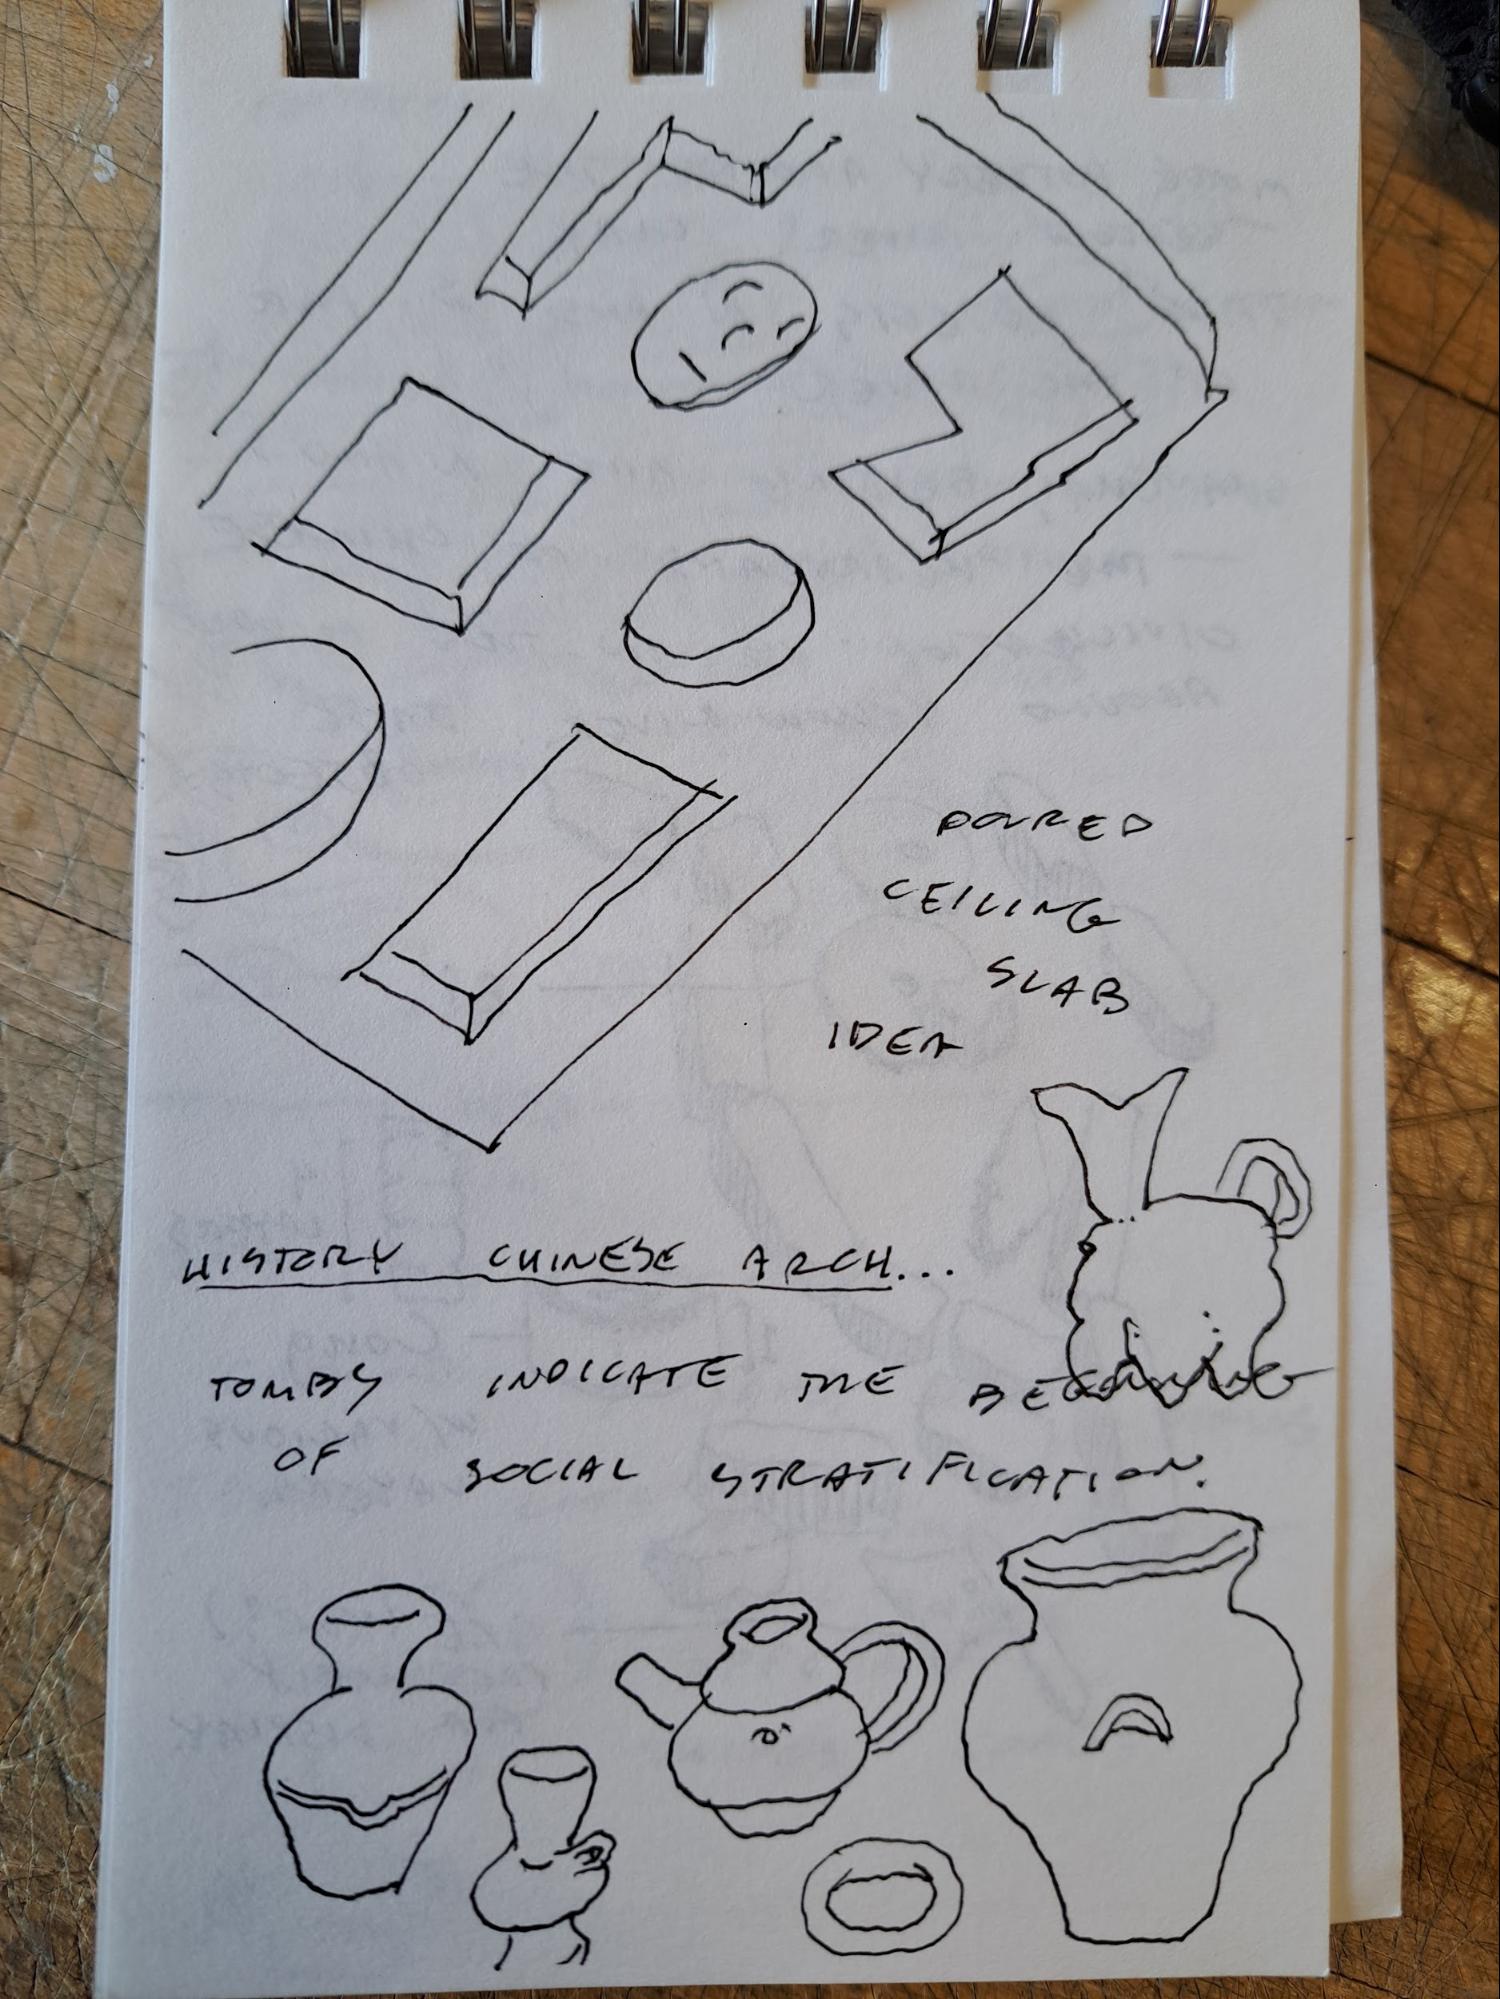 POURED
CEILING
SLAB
IDEA
HISTORY CHINESE ARCH...
TOMBS INDICATE THE BEGINNING
OF SOCIAL STRATIFICATION.